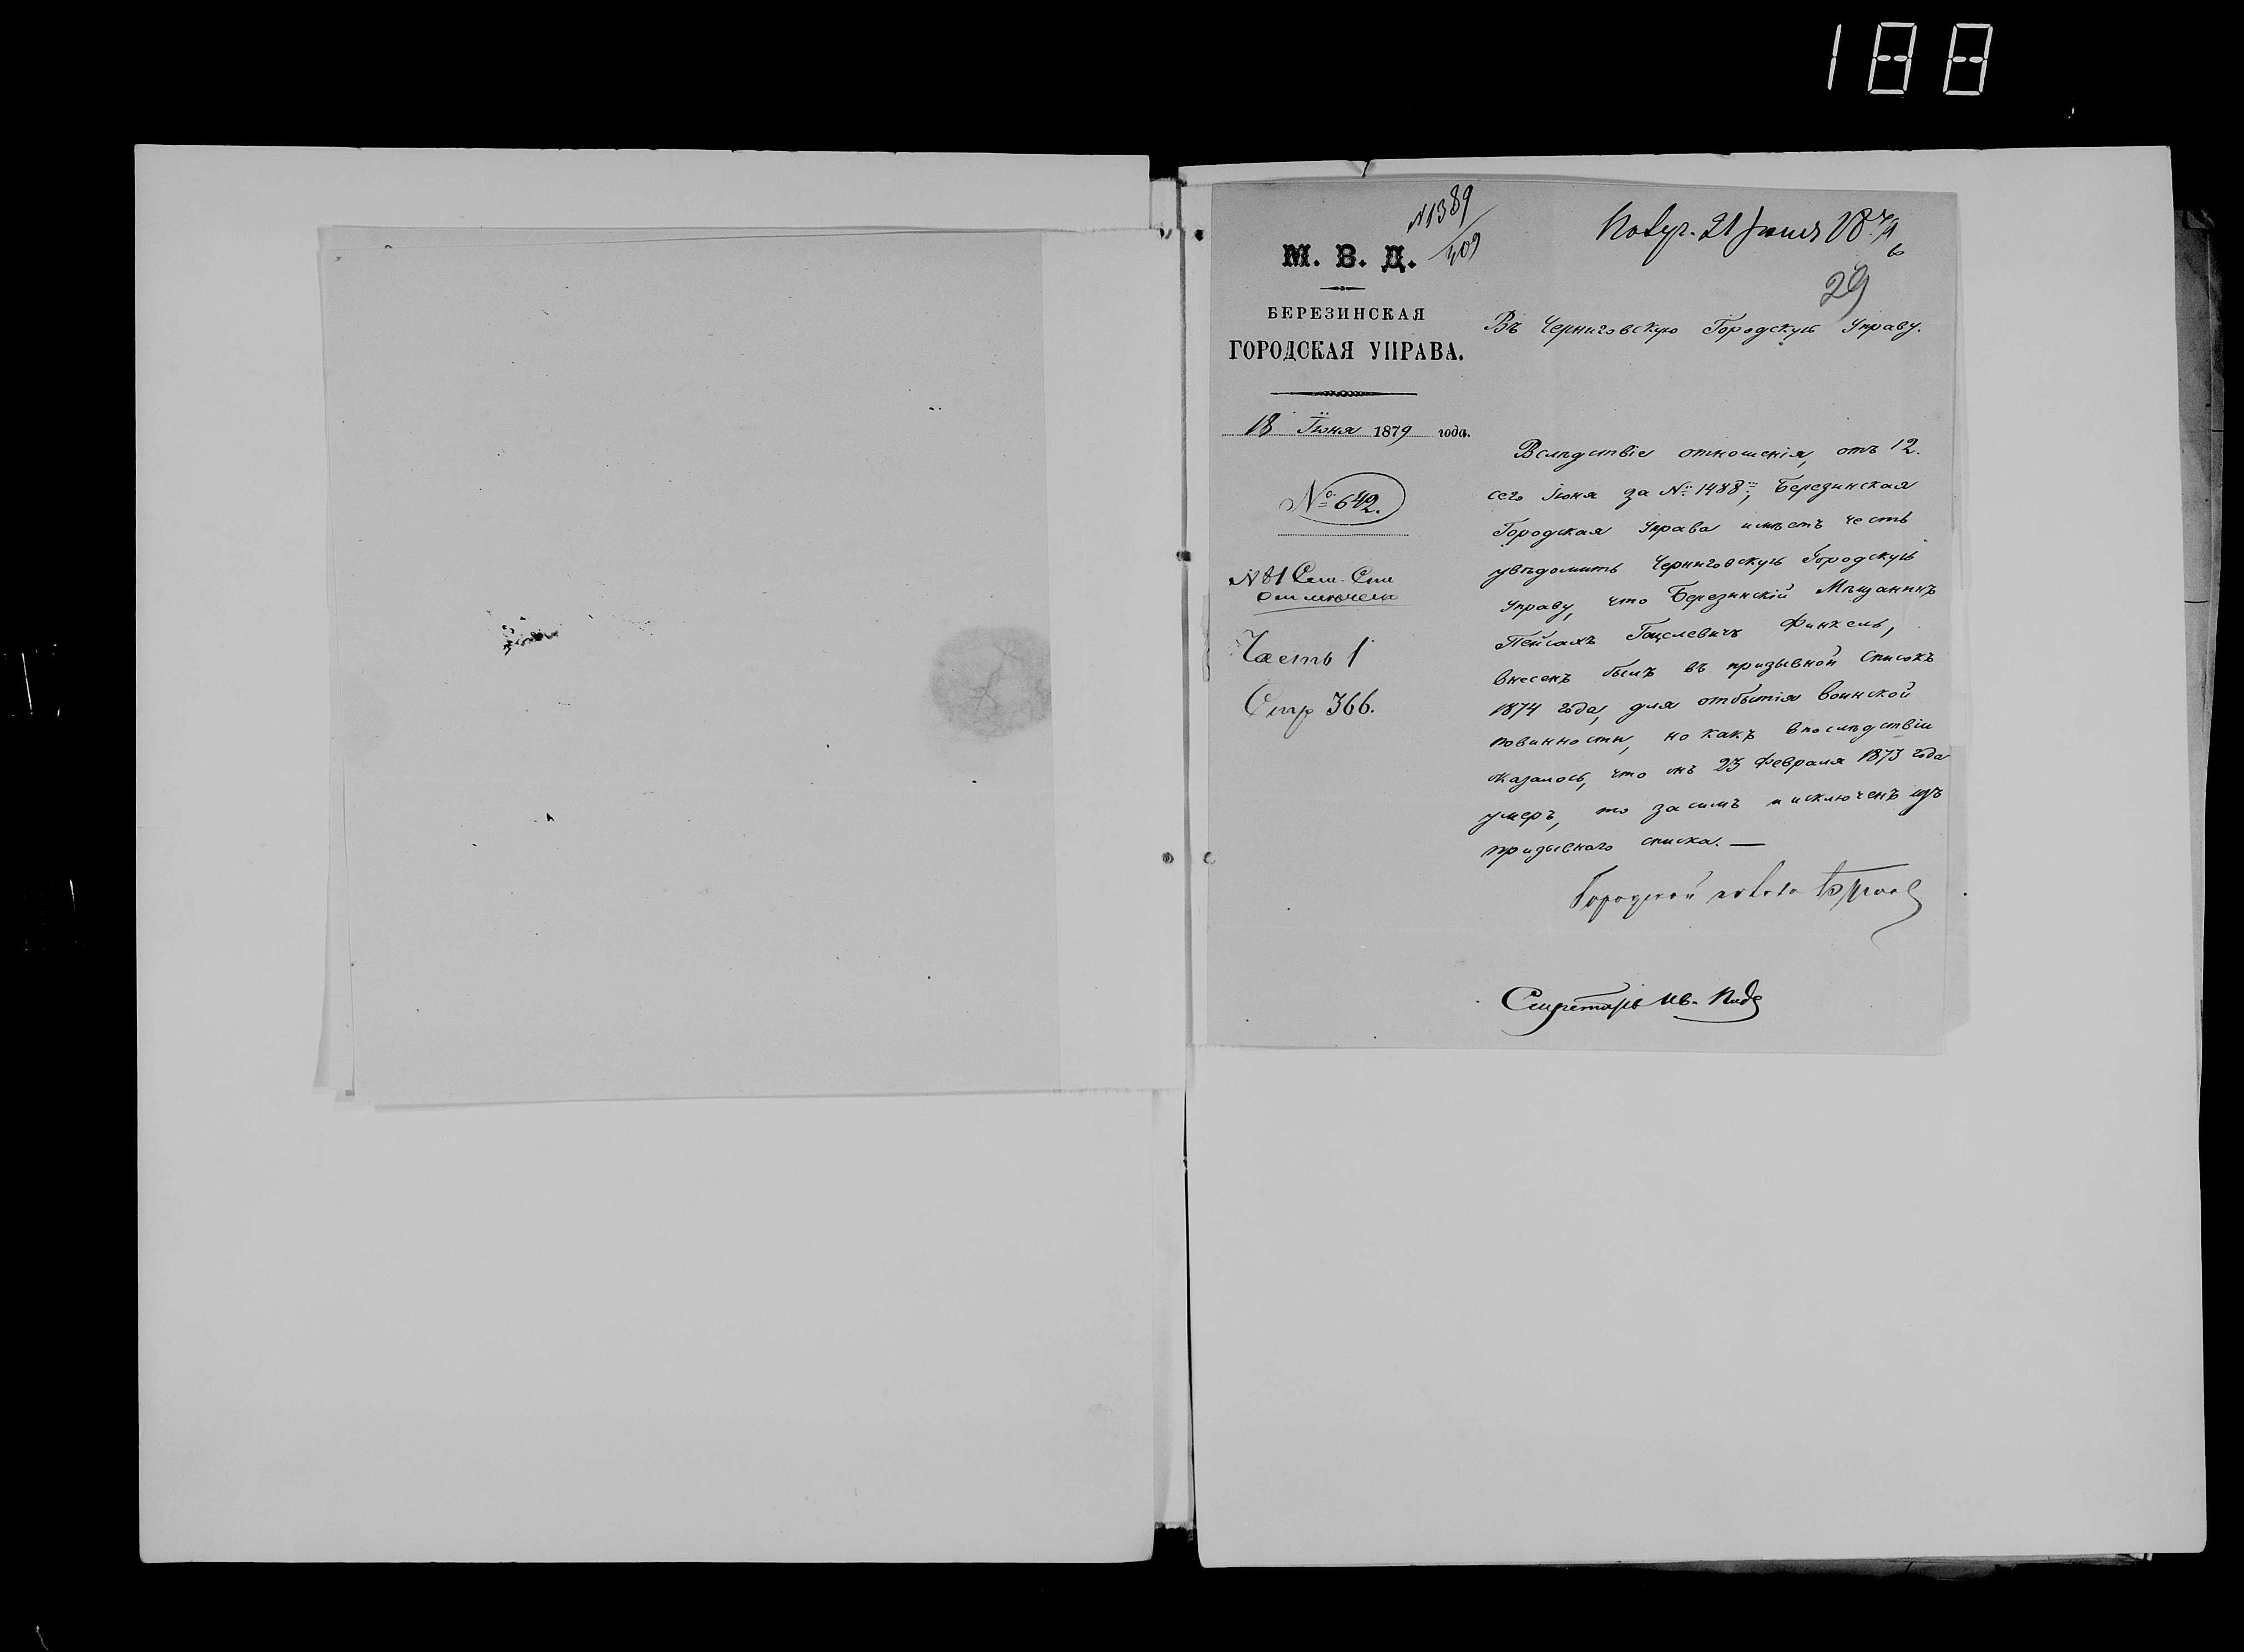 188
№ 1389
409
Получ. 21 Іюня 1879
29
М. В. Д.
БЕРЕЗИНСКАЯ
ГОРОДСКАЯ УПРАВА.
18 Іюня 1879 года.
№ 642.
Часть 1
Стр 366.
Въ Черниговскую Городскую Управу.
Вслѣдствіе отношенія, отъ 12.
сего Іюня за № 1488, Березинская
Городская Управа имѣетъ честь
увѣдомить Черниговскую Городскую
Управу, что Березинскій Мѣщанинъ
Пейсахъ Финкель,
внесенъ былъ въ призывной списокъ
1874 года, для отбытія воинской
повинности, но какъ впослѣдствіи
оказалось, что онъ 23 Февраля 1873 года
умеръ, то за симъ и исключенъ изъ
призывного списка. —
Городской голова
Секретарь Ив.